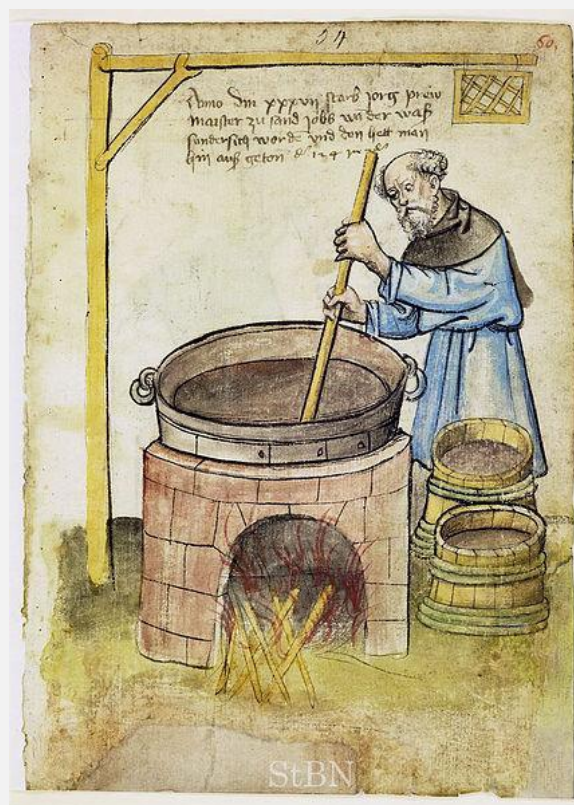 54
60.
Anno dm xxxvii starb jorg prew
maister zu sand jobs un der was
sundersich worde vnd den hett man
hin aus geton
StBN